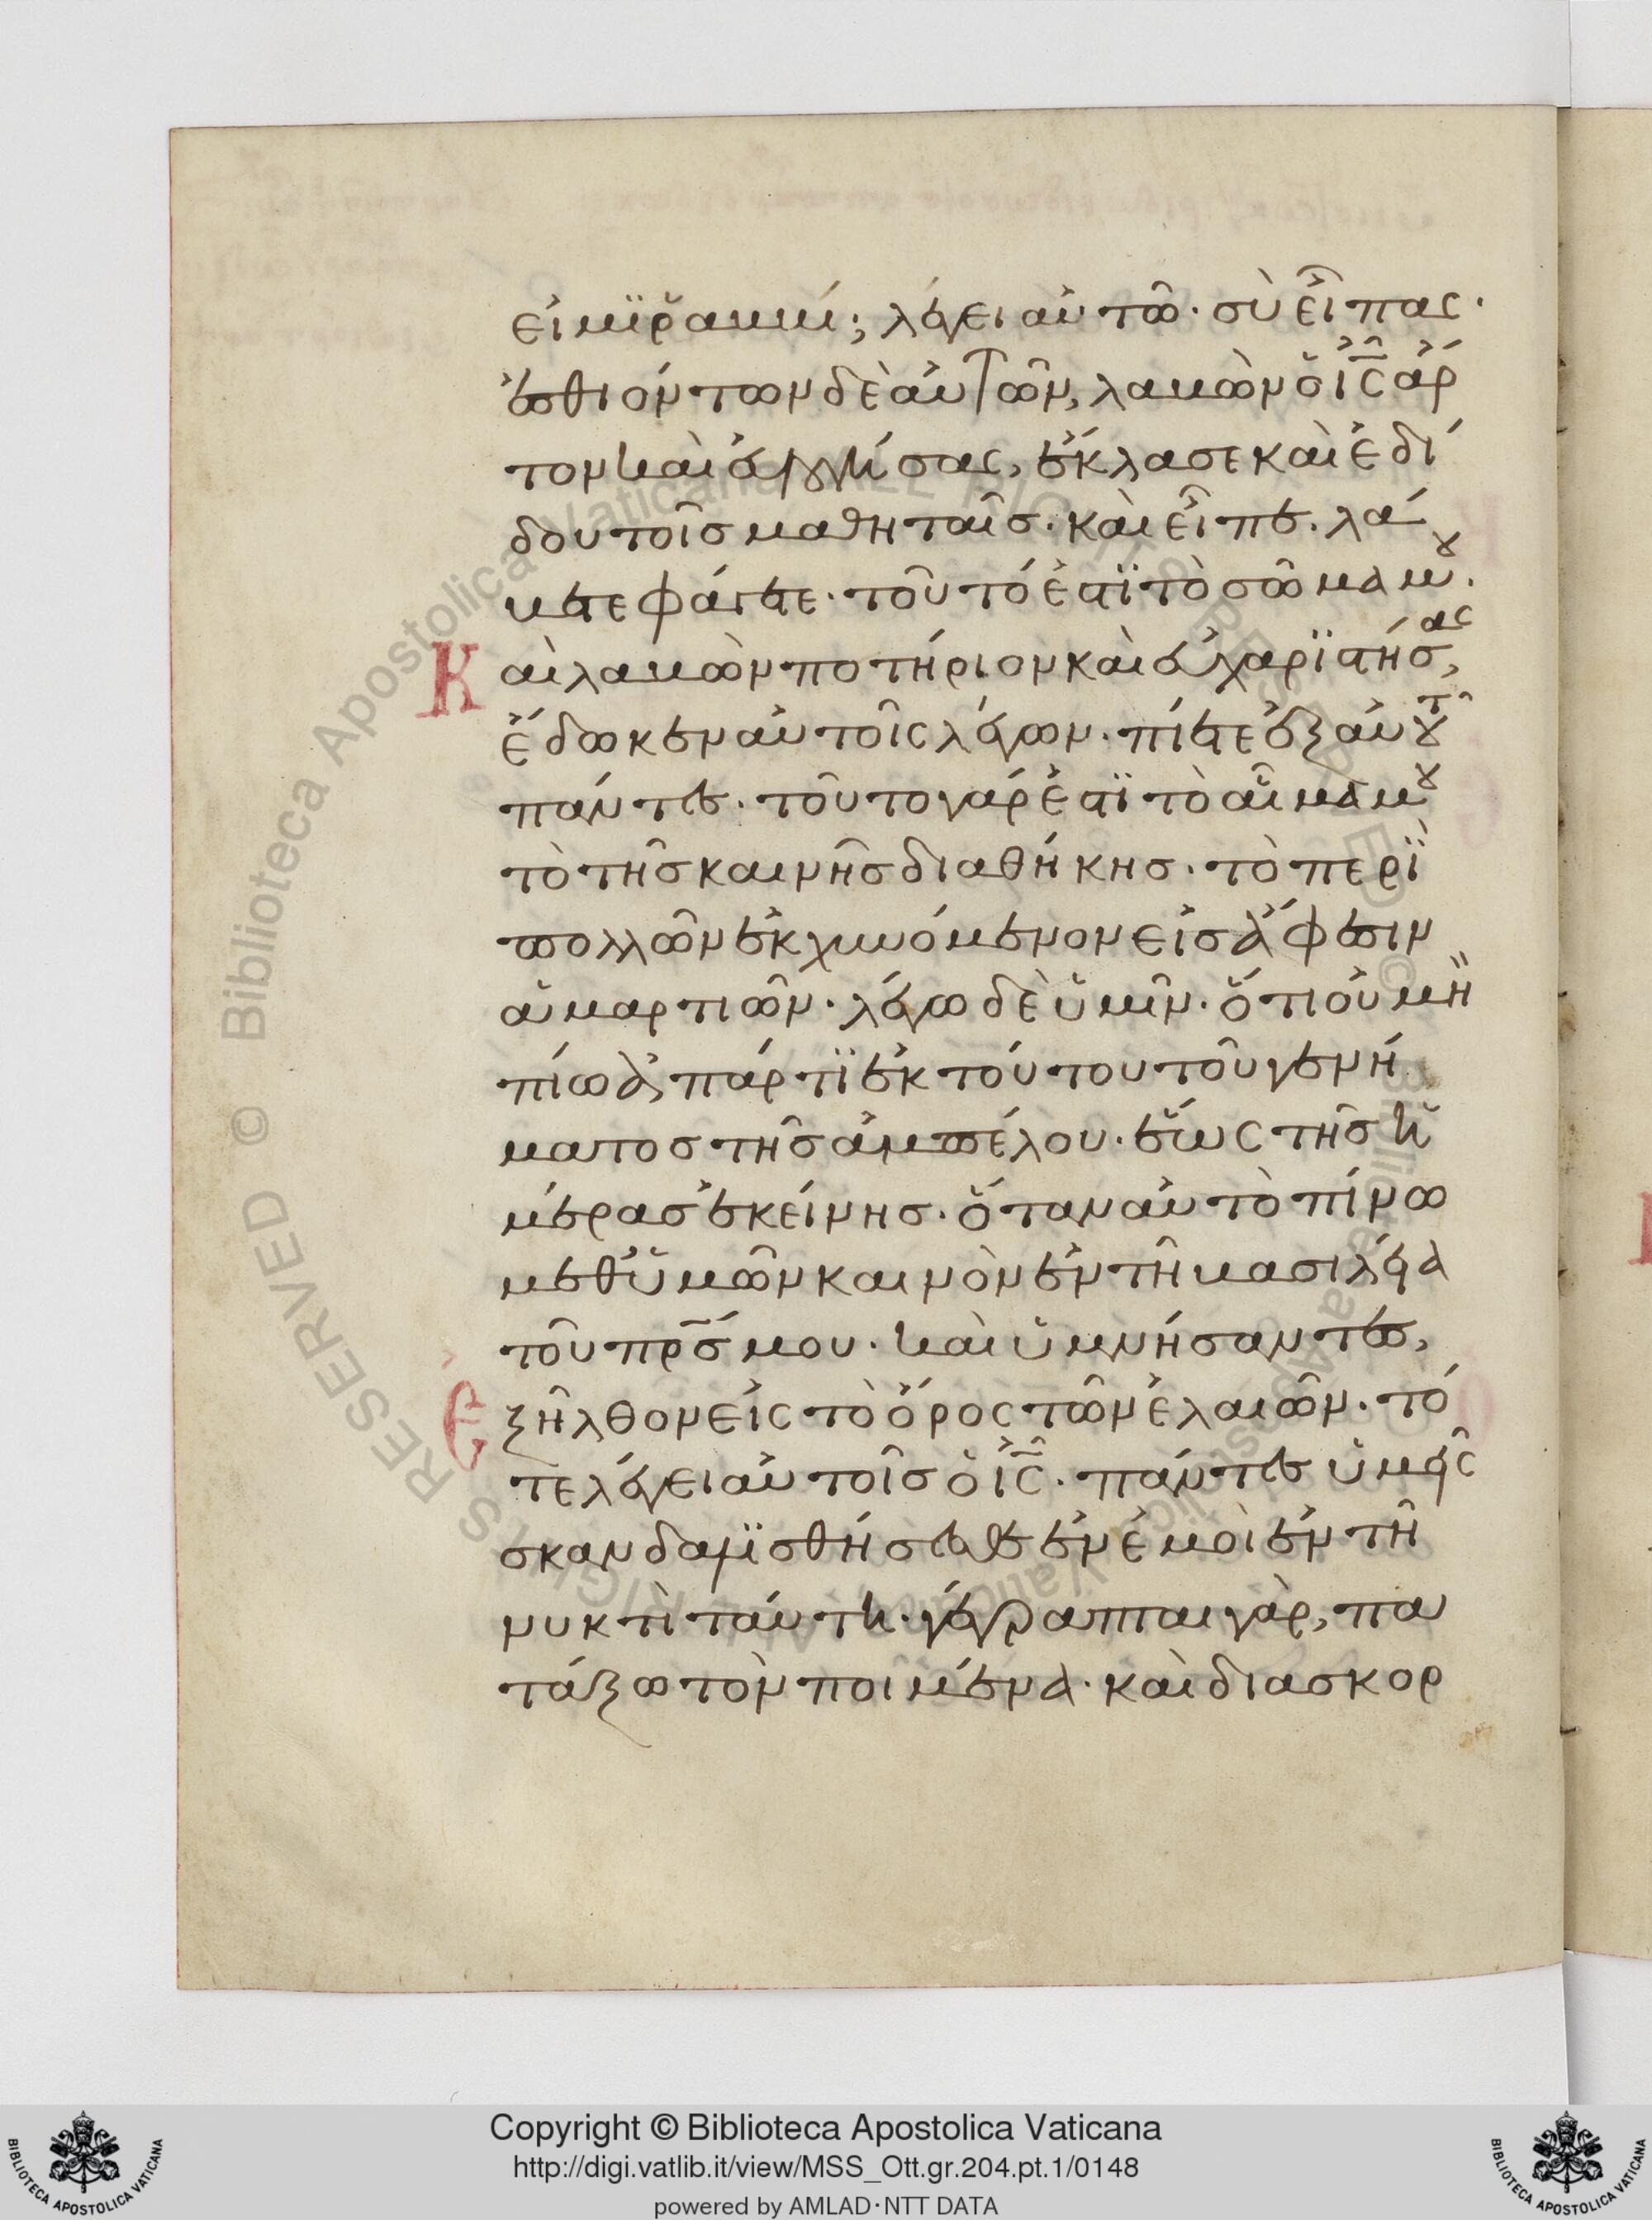 εἰμὶ ῥαββί; λέγει αὐτῶ· σὺ εἶπας·
ἐσθιόντων δὲ αὐτῶν, λαβὼν ὁ ἰ̅ς̅ ἄρ
τον καὶ εὐλογήσας, ἔκλασε καὶ ἐδί
δου τοῖς μαθηταῖς· καὶ εἶπε· λά
βετε φάγετε· τοῦτό ἐστϊ τὸ σῶμα μου·
Καὶ λαβὼν ποτήριον καὶ εὐχαρϊστήσας,
ἔδωκεν αὐτοῖς λέγων· πίετε ἐξ αὐτοῦ
πάντες· τοῦτο γάρ ἐστϊ τὸ αἷμα μου
τὸ τῆς καινῆς διαθήκης· τὸ περὶ
πολλῶν ἐκχυνόμενον εἰς ἄφεσιν
ἁμαρτιῶν· λέγω δὲ ὑμῖν· ὅτι οὐ μὴ
πίω ἀπάρτϊ ἐκ τούτου τοῦ γενή
ματος τῆς ἀμπέλου· ἕως τῆς ἡ
μέρας ἐκείνης· ὅταν αὐτὸ πίνω
μεθ' ὑμῶν καινὸν ἐν τῆ βασιλεία
τοῦ π̅ρ̅ς̅ μου· καὶ ὑμνήσαντες,
Ἐξῆλθον εἰς τὸ ὄρος τῶν ἐλαιῶν· τό
τε λέγει αὐτοῖς ὁ ἰ̅ς̅· πάντες ὑμεῖς
σκανδαλϊσθήσεσθε ἐν ἐμοὶ ἐν τῆ
νυκτὶ ταύτη· γέγραπται γὰρ, πα
τάξω τὸν ποιμένα· καὶ διασκορ
© Biblioteca Apostolica Vaticana ALL RIGHTS RESERVED
Copyright © Biblioteca Apostolica Vaticana
http://digi.vatlib.it/view/MSS_Ott.gr.204.pt.1/0148
powered by AMLAD·NTT DATA
BIBLIOTECA APOSTOLICA VATICANA
BIBLIOTECA APOSTOLICA VATICANA